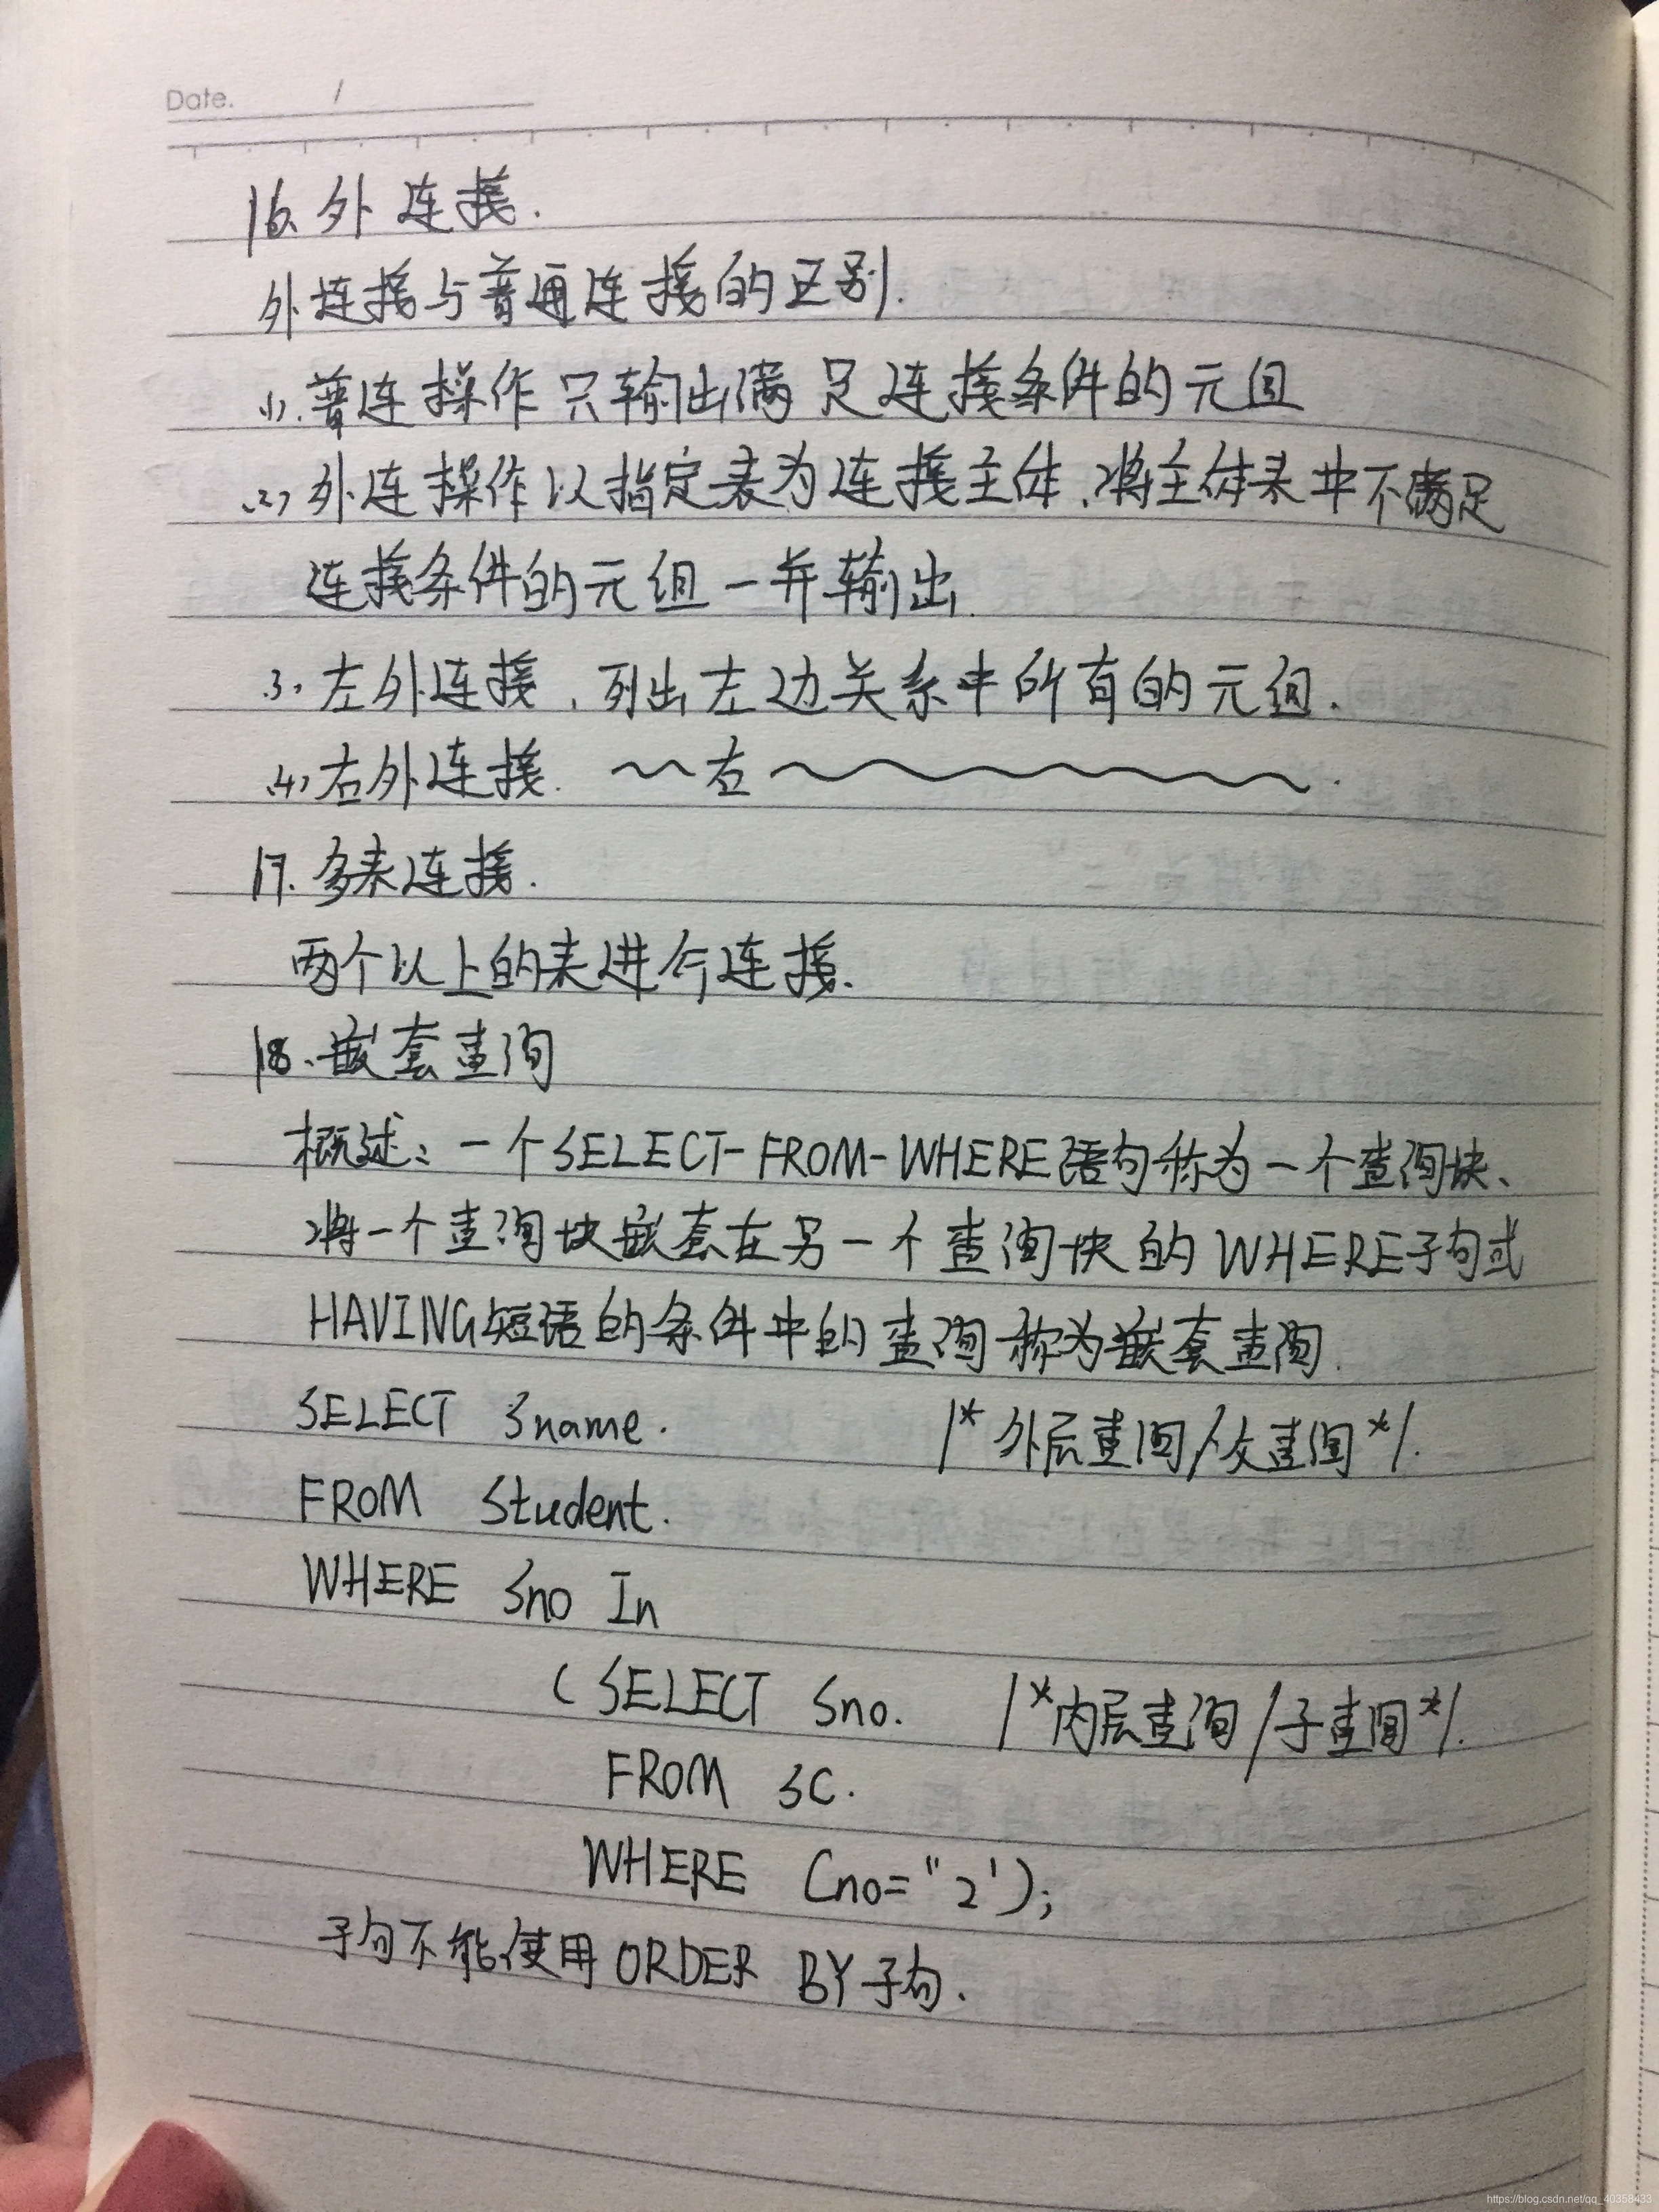 Date. /
16. 外连接.
外连接与普通连接的区别.
(1). 普连操作只输出满足连接条件的元组
(2) 外连操作以指定表为连接主体,将主体表中不满足
连接条件的元组一并输出.
(3). 左外连接,列出左边关系中所有的元组.
(4) 右外连接. ~~右~~~~~~.
17. 多表连接.
两个以上的表进行连接.
18. 嵌套查询
概述: 一个SELECT-FROM-WHERE语句称为一个查询块、
将一个查询块嵌套在另一个查询块的WHERE子句或
HAVING短语的条件中的查询称为嵌套查询.
SELECT Sname. /* 外层查询/父查询 */.
FROM Student.
WHERE Sno In
(SELECT Sno. /*内层查询/子查询*/.
FROM SC.
WHERE Cno="2');
子句不能使用ORDER BY子句.
https://blog.csdn.net/qq_40358433